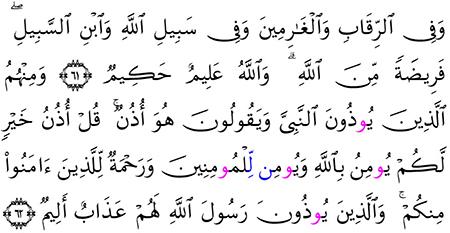 وَفِي اِ۬لرِّقَابِ وَالْغَٰرِمِينَ وَفِي سَبِيلِ اِ۬للَّهِ وَابْنِ اِ۬لسَّبِيلِۖ
فَرِيضَةٗ مِّنَ اَ۬للَّهِۗ وَاللَّهُ عَلِيمٌ حَكِيمٞ ٦١ وَمِنْهُمُ
اُ۬لذِينَ يُوذُونَ اَ۬لنَّبِيَّ وَيَقُولُونَ هُوَ أُذُنٞۚ قُلُ أُذُنُ خَيْرٖ
لَّكُمْ يُومِنُ بِاللَّهِ وَيُومِن لِّلْمُومِنِينَ وَرَحْمَةٞ لِّلَّذِينَ ءَامَنُواْ
مِنكُمْۚ وَالَّذِينَ يُوذُونَ رَسُولَ اَ۬للَّهِ لَهُمْ عَذَابٌ أَلِيمٞ ٦٢